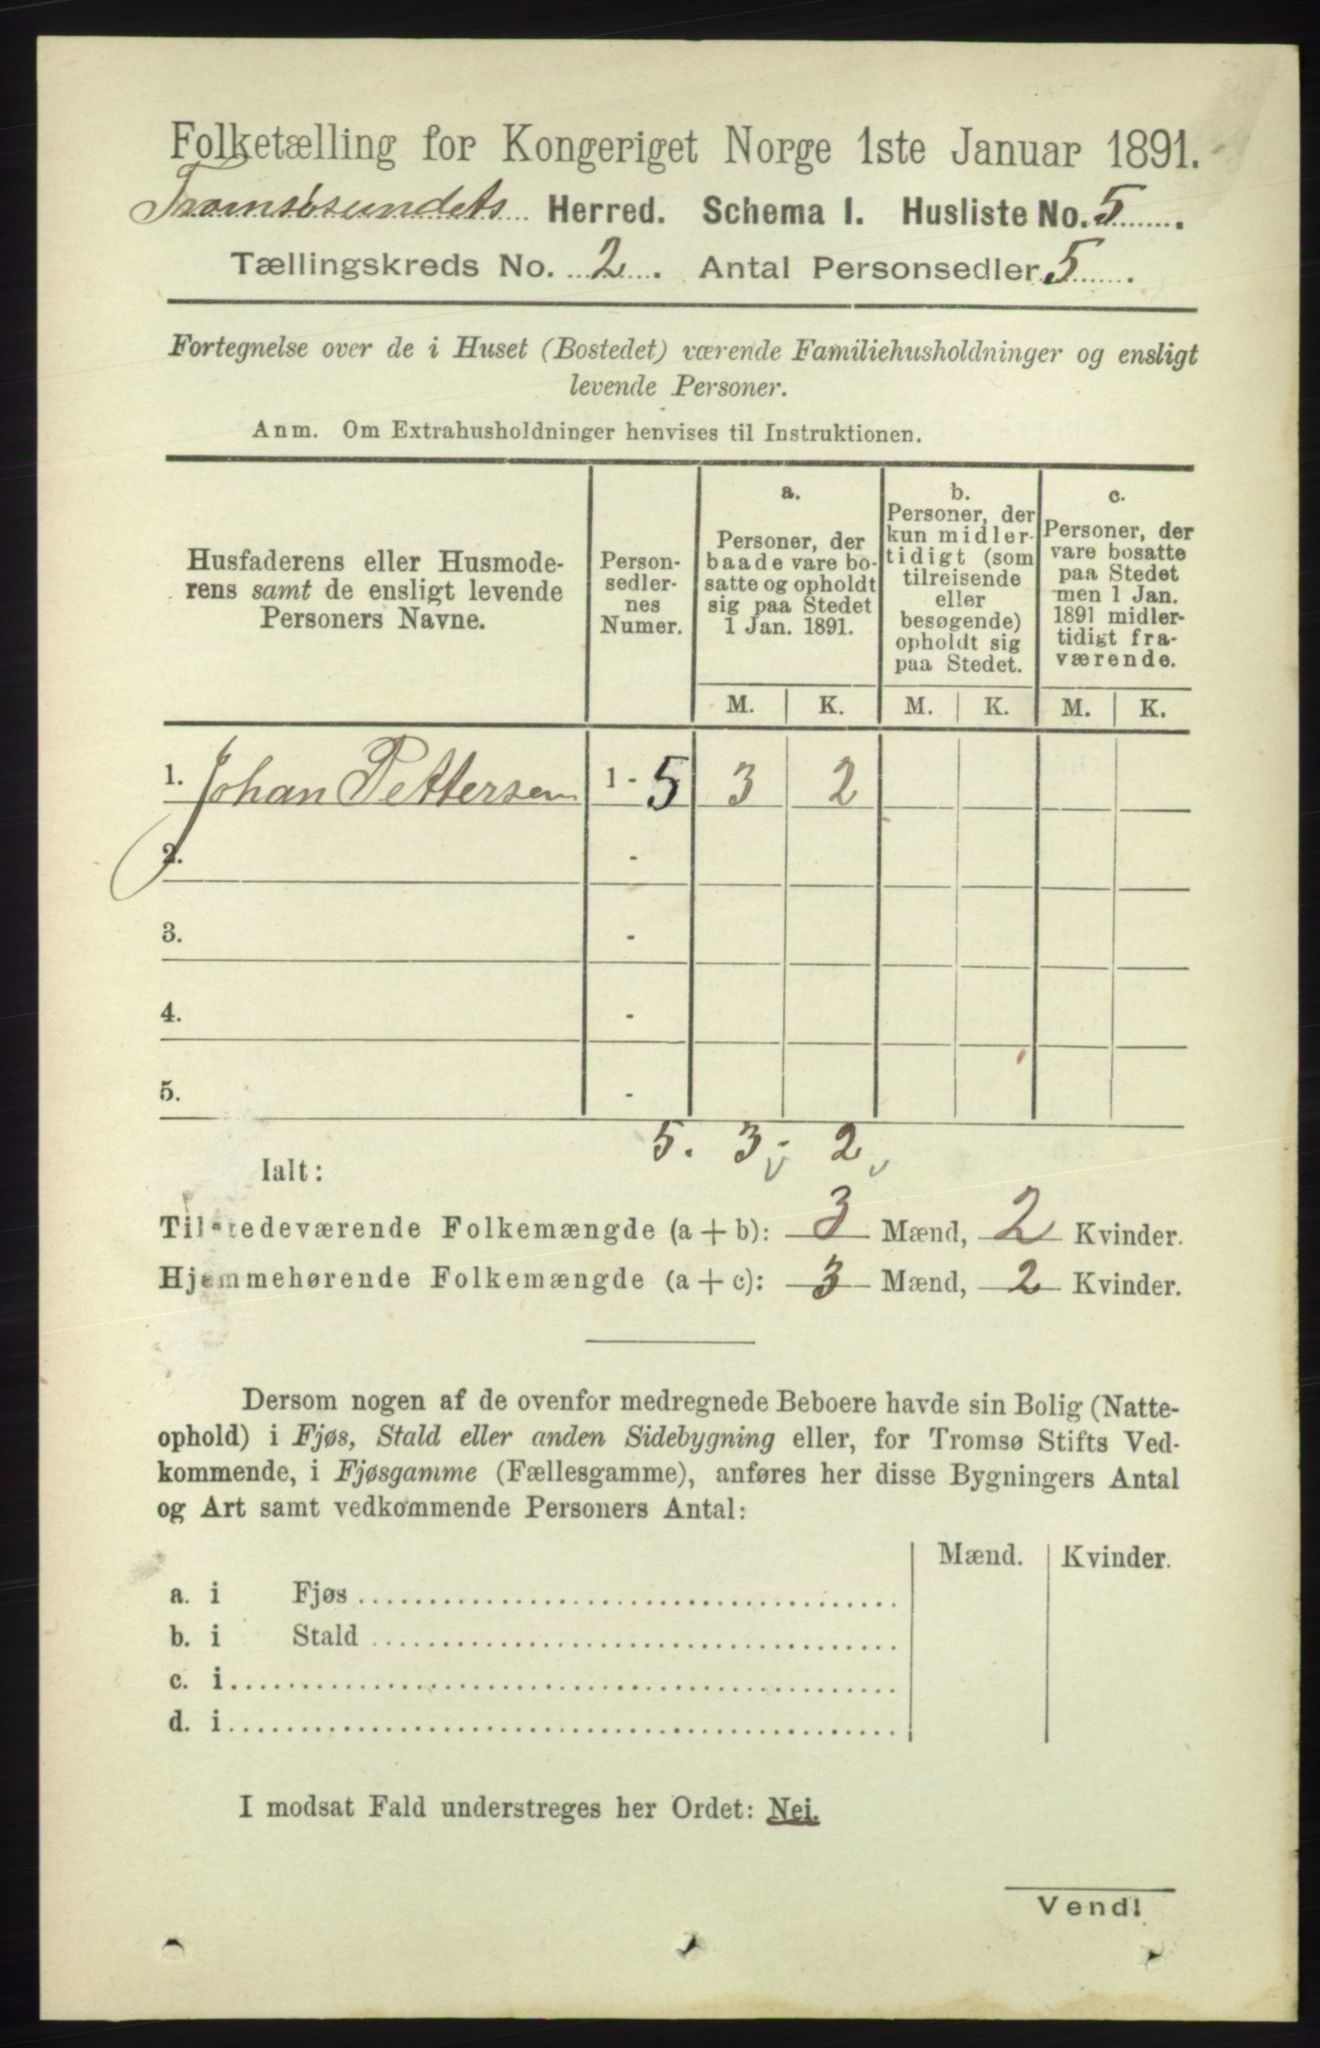 Folketælling for Kongeriget Norge 1ste Januar 1891.
Tromsøsundets Herred. Schema I. Husliste No. 5.
Tællingskreds No. 2. Antal Personsedler 5.
Fortegnelse over de i Huset (Bostedet) værende Familiehusholdninger og ensligt
levende Personer.
Anm. Om Extrahusholdninger henvises til Instruktionen.
Husfaderens eller Husmode-
rens samt de ensligt levende
Personers Navne.
Person-
sedler-
nes
Numer.
a.
Personer, der
baade vare bo-
satte og opholdt
sig paa Stedet
1 Jan. 1891.
b.
Personer, der
kun midler-
tidigt (som
tilreisende
eller
besøgende)
opholdt sig
paa Stedet.
c.
Personer, der
vare bosatte
paa Stedet
men 1 Jan.
1891 midler-
tidigt fra-
værende.
M. K. M. K. M. K.
1. Johan Pettersen 1 - 5 3 2
2. -
3. -
4. -
5. -
5. 3 - 2
Ialt:
Tilstedeværende Folkemængde (a + b): 3 Mænd, 2 Kvinder.
Hjemmehørende Folkemængde (a + c): 3 Mænd, 2 Kvinder.
Dersom nogen af de ovenfor medregnede Beboere havde sin Bolig (Natte-
ophold) i Fjøs, Stald eller anden Sidebygning eller, for Tromsø Stifts Ved-
kommende, i Fjøsgamme (Fællesgamme), anføres her disse Bygningers Antal
og Art samt vedkommende Personers Antal:
Mænd. Kvinder.
a. i Fjøs
b. i Stald
c. i
d. i
I modsat Fald understreges her Ordet: Nei.
Vend!